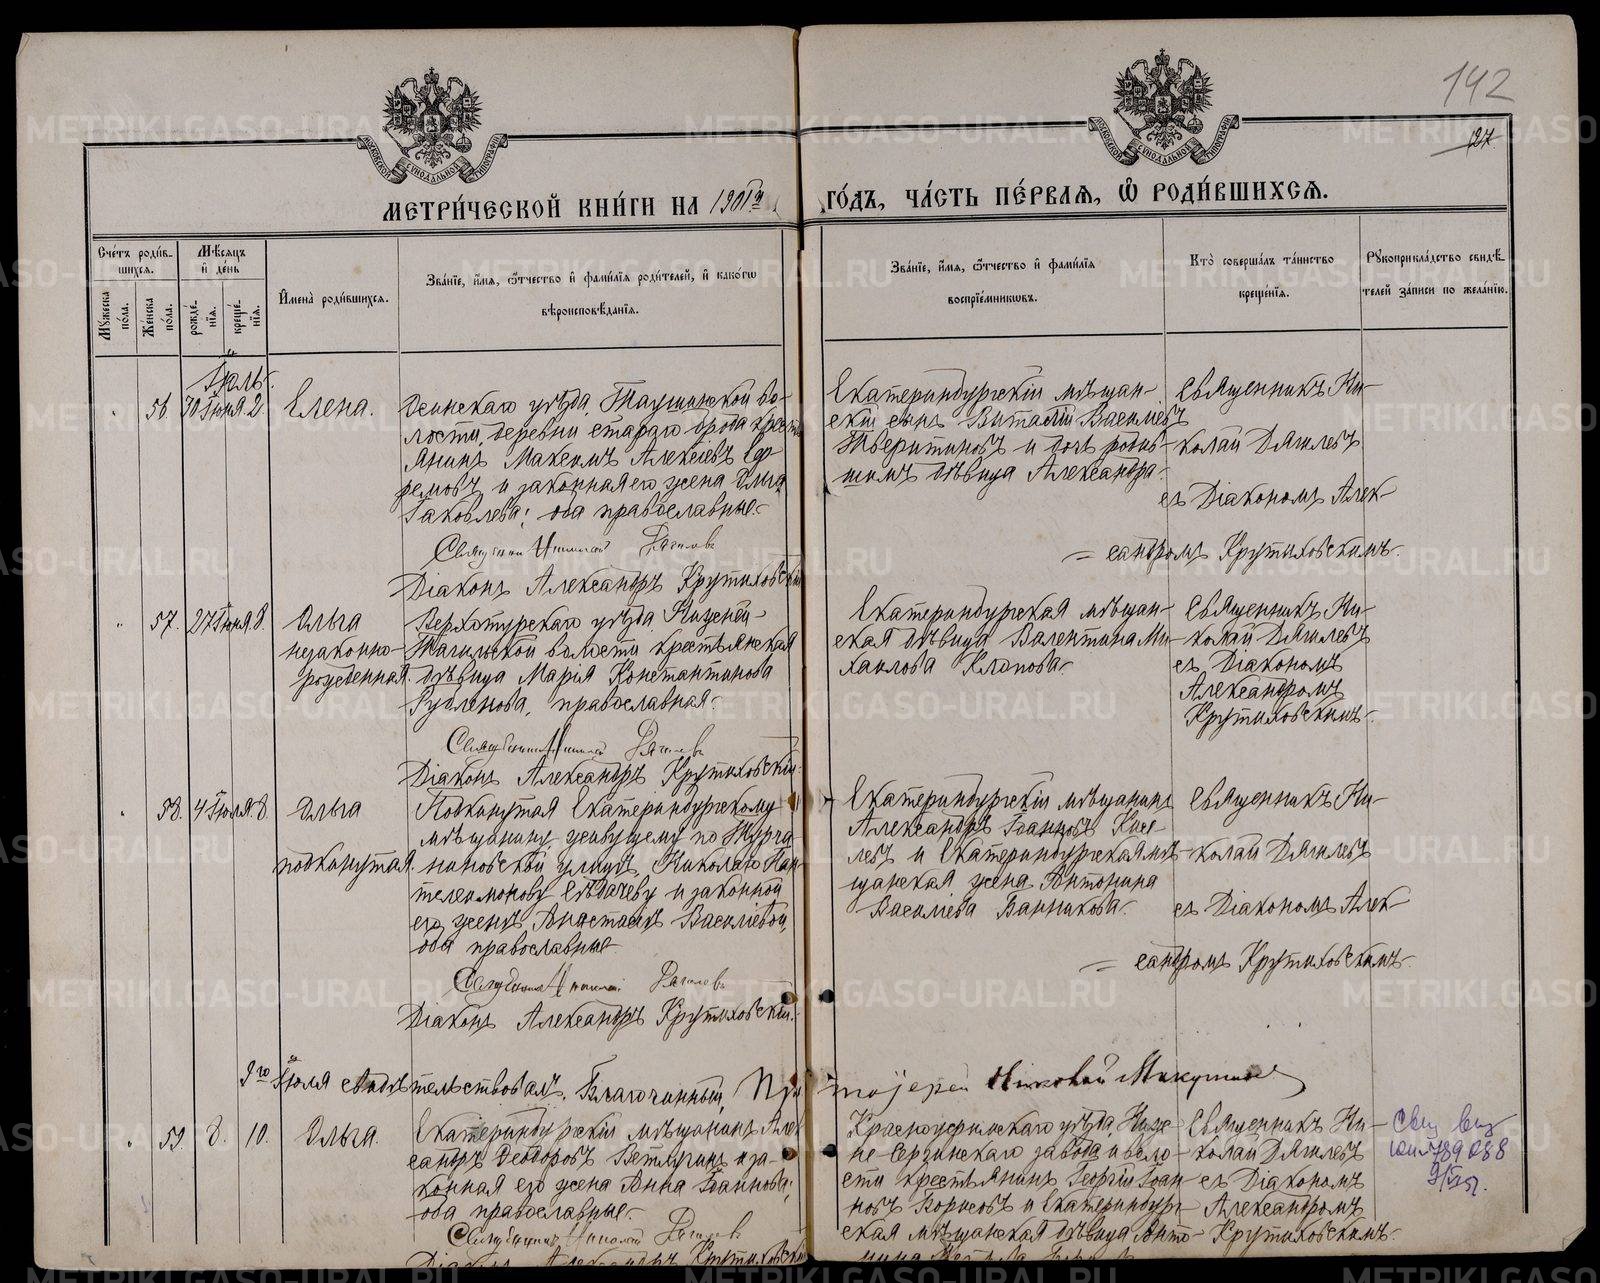 142
127
МОСКОВСКОЙ СѴНОДАЛЬНОЙ ТИПОГРАФІИ
МОСКОВСКОЙ СѴНОДАЛЬНОЙ ТИПОГРАФІИ
МЕТРИ́ЧЕСКОЙ КНИ́ГИ НА 1901й
ГО́ДЪ, ЧА́СТЬ ПЕ́РВАѦ, Ѡ҆ РОДИ́ВШИХСѦ.
Сче́тъ роди́в-
шихсѧ.
Мѣ́сѧцъ
и҆ де́нь
Мꙋ́жеска
по́ла.
Же́нска
по́ла.
рожде́-
нїѧ.
креще́-
нїѧ.
И҆мена̀ роди́вшихсѧ.
Зва́нїе, и҆́мѧ, ѻ҆́тчество и҆ фами́лїѧ роди́телей, и҆ како́гѡ
вѣроисповѣ́данїѧ.
Зва́нїе, и҆́мѧ, ѻ҆́тчество и҆ фами́лїѧ
воспрїе́мникѡвъ.
Кто̀ соверша́лъ та́инство
креще́нїѧ.
Рꙋкоприкла́дство свидѣ́-
телей за́писи по жела́нїю.
Іюль.
56 30 Іюня 2. Елена.
Осинскаго уѣзда, Таушинской во-
лости, деревни стараго брода кресть-
янинъ Максимъ Алексіевъ Еф-
ремовъ и законная его жена Ольга
Іаковлева; оба православные.
Священникъ Николай Дягилевъ
Діаконъ Александръ Крутиховскій
Екатеринбургскій мѣщан-
скій сынъ Виталій Васильевъ
Тверитиновъ и
дѣвица Александра.
Священникъ Ни-
колай Дягилевъ
съ Діакономъ Алек-
сандромъ Крутиховскимъ.
57. 27 Іюня. 8. Ольга
незаконно-
рожденная.
Верхотурскаго уѣзда, Нижне-
Тагильской волости крестьянская
дѣвица Марія Константинова
православная.
Священникъ Николай Дягилевъ
Діаконъ Александръ Крутиховскій.
Екатеринбургская мѣщан-
ская дѣвица Валентина Ми-
хаилова Клопова.
Священникъ Ни-
колай Дягилевъ
съ Діакономъ
Александромъ
Крутиховскимъ.
58. 4 Іюля. 8. Ольга
подкинутая.
Подкинутая Екатеринбургскому
мѣщанину, живущему по Турча-
ниновской улицѣ, Николаю Пан-
телеимонову Сѣдачеву и законной
его женѣ Анастасіи Васильевой,
оба православные.
Священникъ Николай Дягилевъ
Діаконъ Александръ Крутиховскій.
Екатеринбургскій мѣщанинъ
Александръ Іоанновъ Кисе-
левъ и Екатеринбургская мѣ-
щанская жена Антонина
Васильева Банникова.
Священникъ Ни-
колай Дягилевъ
съ Діакономъ Алек-
сандромъ Крутиховскимъ.
9го Іюля свидѣтельствовалъ. Благочинный, Протоіерей Николай
59. 8. 10. Ольга.
Екатеринбургскій мѣщанинъ Алек-
сандръ Ѳеодоровъ Ветлугинъ и за-
конная его жена Анна Іоаннова;
оба православные.
Священникъ Николай Дягилевъ
Діаконъ Александръ Крутиховскій
Красноуфимскаго уѣзда, Ниж-
не-Сергинскаго завода и воло-
сти крестьянинъ Георгій Іоан-
новъ Борисовъ и Екатеринбург-
ская мѣщанская дѣвица Анто-
нина
Священникъ Ни-
колай Дягилевъ
съ Діакономъ
Александромъ
Крутиховскимъ.